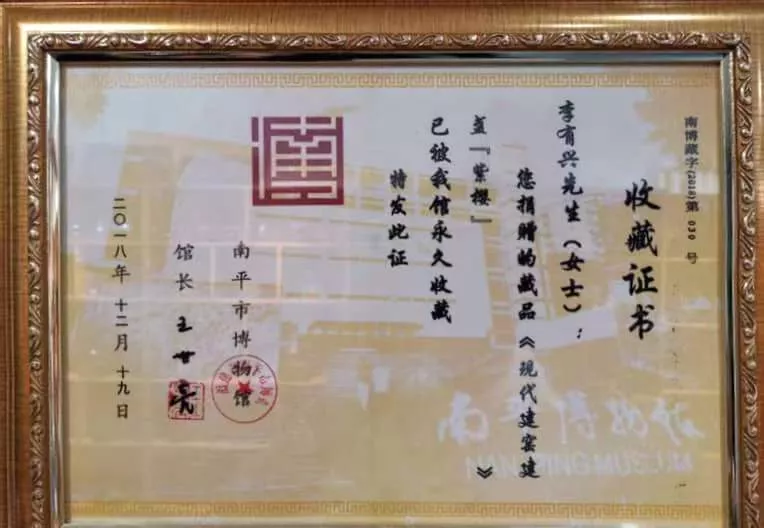 南博藏字(2018)第 030 号
收藏证书
李有兴先生（女士）：
您捐赠的藏品《现代建窑建
盏『紫樱』》
已被我馆永久收藏
特发此证
南平市博物馆
馆长
二〇一八年 十二月 十九日
南平博物馆
NANPING MUSEUM